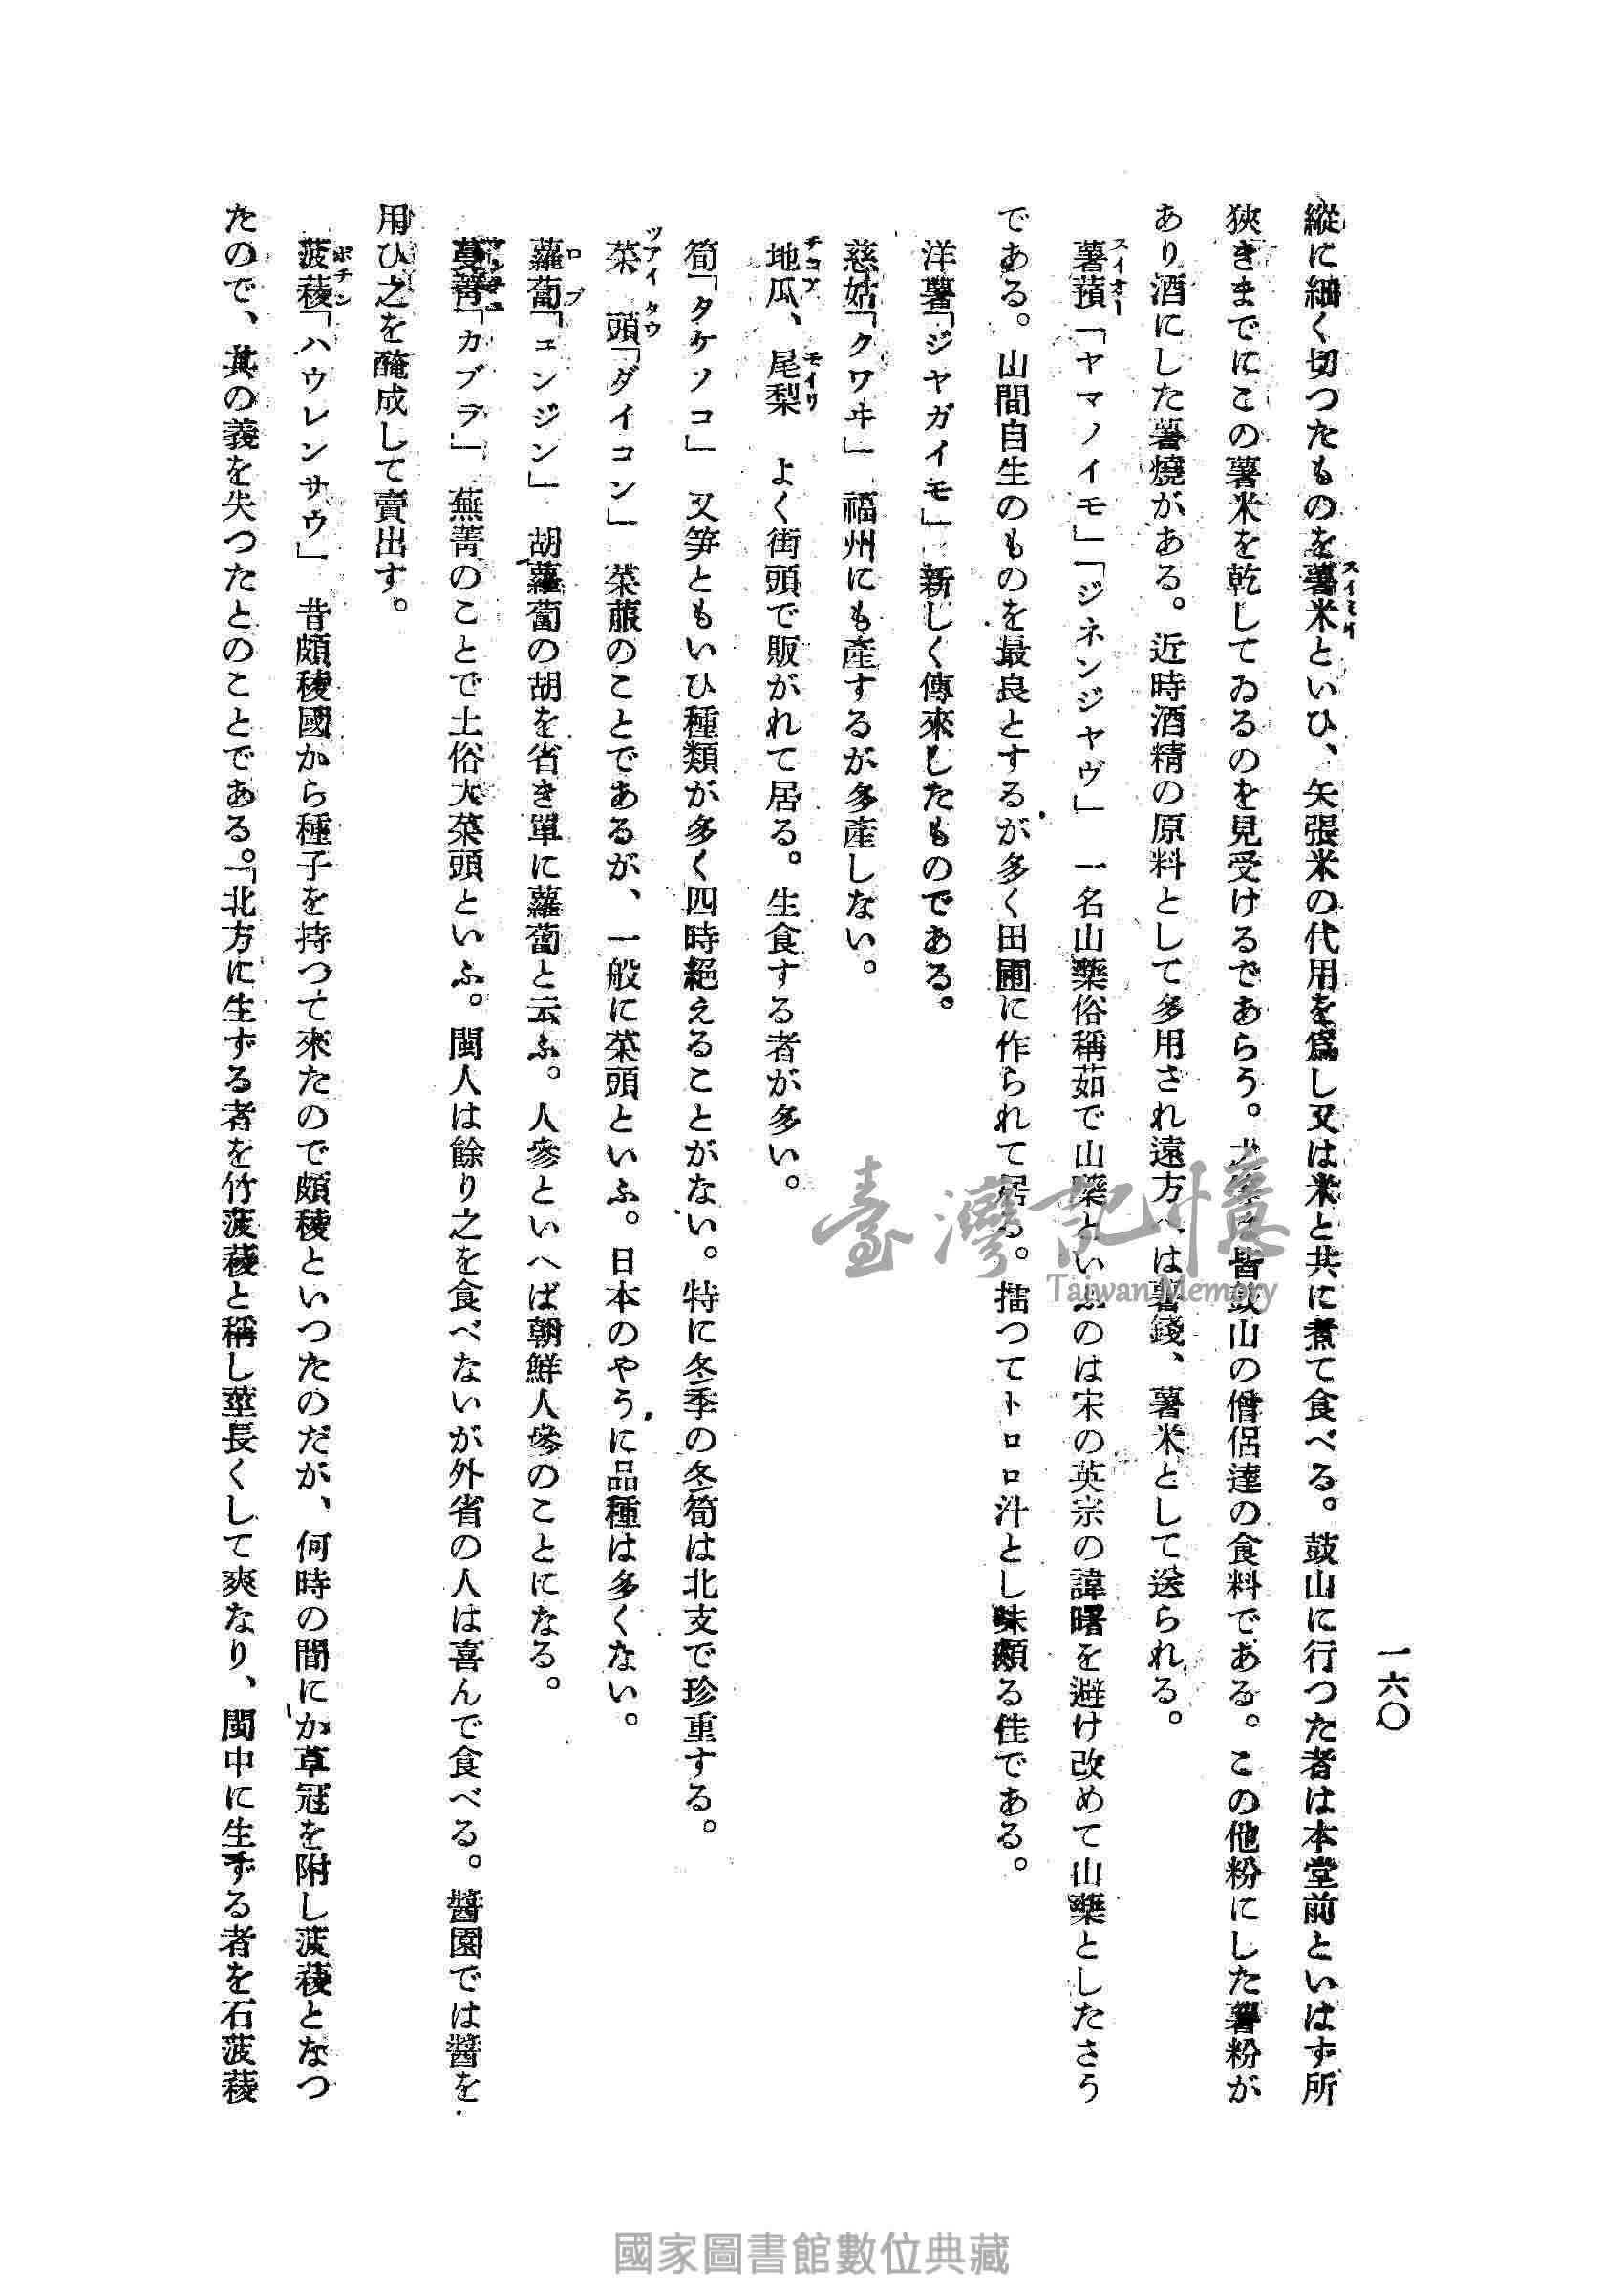 一六〇
縱に細く切つたものを薯米といひ、矢張米の代用を爲し又は米と共に煮て食べる。鼓山に行つた者は本堂前といはず所
スイミイ
狹きまでにこの薯米を乾してゐるのを見受けるであらう。皆鼓山の僧侶達の食料である。この他粉にした薯粉が
あり酒にした薯燒がある。近時酒精の原料として多用され遠方へは薯錢、薯米として送られる。
薯蕷「ヤマノイモ」「ジネンジヤヴ」 一名山藥俗稱茹で山藥といふのは宋の英宗の諱曙を避け改めて山藥としたさう
スイオー
である。山間自生のものを最良とするが多く田圃に作られて居る。擂つてトロロ汁とし味頗る佳である。
洋薯「ジヤガイモ」 新しく傳來したものである。
慈姑「クワヰ」 福州にも產するが多產しない。
地瓜、尾梨 よく街頭で販がれて居る。生食する者が多い。
チコア モイリ
筍「タケノコ」 又笋ともいひ種類が多く四時絕えることがない。特に冬季の冬筍は北支で珍重する。
菜頭「ダイコン」 菜菔のことであるが、一般に菜頭といふ。日本のやうに品種は多くない。
ツアイタウ
蘿蔔「ニンジン」 胡蘿蔔の胡を省き單に蘿蔔と云ふ。人參といへば朝鮮人參のことになる。
ロブ
蔓菁「カブラ」 蕪菁のことで土俗大菜頭といふ。閩人は餘り之を食べないが外省の人は喜んで食べる。醬園では醬を
用ひ之を醃成して賣出す。
菠薐「ハウレンサウ」 昔頗稜國から種子を持つて來たので頗稜といつたのだが、何時の間にか草冠を附し菠薐となつ
ポチン
たので、其の義を失つたとのことである。「北方に生ずる者を竹菠薐と稱し莖長くして爽なり、閩中に生ずる者を石菠薐
臺灣記憶
Taiwan Memory
國家圖書館數位典藏